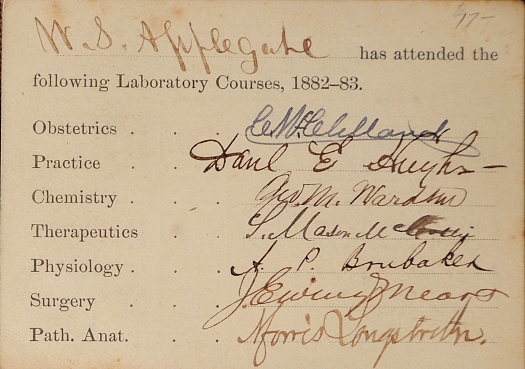 77-
W. S. Applegate has attended the
following Laboratory Courses, 1882–83.
Obstetrics . . . C M Clelland
Practice . . . Danl E Hughes
Chemistry . . . Geo. M. Ward
Therapeutics . . . S. Mason Mc
Physiology . . . A. P. Brubaker
Surgery . . . J. Ewing Mears
Path. Anat. . . . Morris Longstreth.